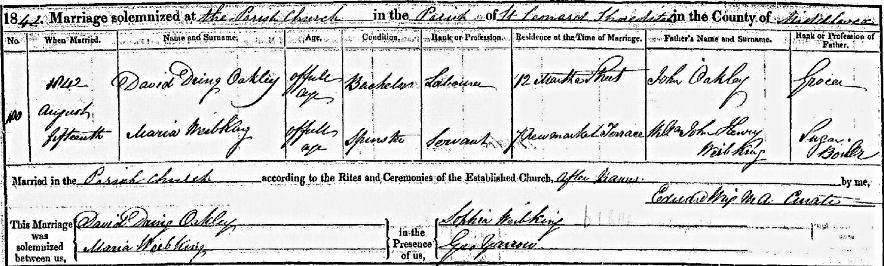 1842. Marriage solemnized at the Parish Church in the Parish of St Leonard Shoreditch in the County of Middlesex
No. When Married. Name and Surname. Age. Condition. Rank or Profession. Residence at the Time of Marriage. Father's Name and Surname. Rank or Profession of Father.
1842 David Dring Oakley of full age Bachelor Labourer 12 Martha Street John Oakley Grocer
100 August
fifteenth Maria Weibking of full age Spinster Servant 7 Newmarket Terrace John Henry Weibking Sugar Boiler
Married in the Parish Church according to the Rites and Ceremonies of the Established Church, after Banns by me,
Edward M A Curate
This Marriage was solemnized between us, David Dring Oakley in the Presence of us, Sophia Weibking
Maria Weibking Geo